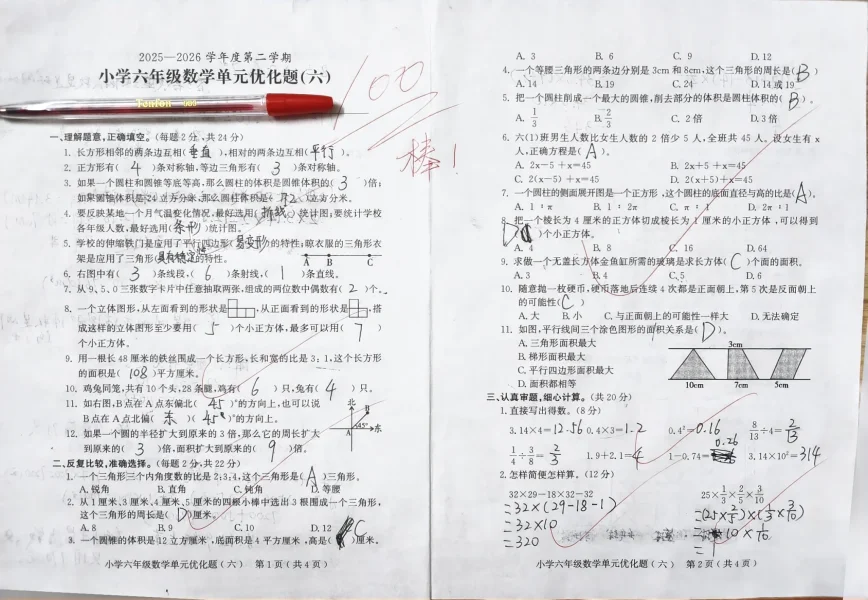 2025—2026 学年度第二学期
小学六年级数学单元优化题(六)
Tenfon 003
100
棒!
一、理解题意,正确填空。(每题 2 分,共 24 分)
1. 长方形相邻的两条边互相(垂直),相对的两条边互相(平行)。
2. 正方形有( 4 )条对称轴,等边三角形有( 3 )条对称轴。
3. 如果一个圆柱和圆锥等底等高,那么圆柱的体积是圆锥体积的( 3 )倍;
如果圆锥体积是 24 立方分米,那么圆柱体积是( 72 )立方分米。
4. 要反映某地一个月气温变化情况,最好选用(折线)统计图;要统计学校
各年级人数,最好选用(条形)统计图。
5. 学校的伸缩铁门是应用了平行四边形(易变形)的特性;晾衣服的三角形衣
架是应用了三角形(具有稳定性)的特性。
A B C
6. 右图中有( 3 )条线段,( 6 )条射线,( 1 )条直线。
7. 从 9、5、0 三张数字卡片中任意抽取两张,组成的两位数中偶数有( 2 )个。
8. 一个立体图形,从左面看到的形状是,从正面看到的形状是,搭
成这样的立体图形至少要用( 5 )个小正方体,最多可以用( 7 )
个小正方体。
9. 用一根长 48 厘米的铁丝围成一个长方形,长和宽的比是 3∶1,这个长方形
的面积是( 108 )平方厘米。
10. 鸡兔同笼,共有 10 个头,28 条腿,鸡有( 6 )只,兔有( 4 )只。
11. 如右图,B 点在 A 点东偏北( 45 )°的方向上,也可以说
B 点在 A 点北偏( 东 )( 45 )°的方向上。
北
B
45°
A
东
12. 如果一个圆的半径扩大到原来的 3 倍,那么它的周长扩大
到原来的( 3 )倍,面积扩大到原来的( 9 )倍。
二、反复比较,准确选择。(每题 2 分,共 22 分)
1. 一个三角形三个内角度数的比是 2∶3∶4,这个三角形是( A )三角形。
A. 锐角 B. 直角 C. 钝角 D. 等腰
2. 从 1 厘米、3 厘米、4 厘米、5 厘米的四根小棒中选出 3 根围成一个三角形,
这个三角形的周长是( D )厘米。
A. 8 B. 9 C. 10 D. 12
3. 一个圆锥的体积是 12 立方厘米,底面积是 4 平方厘米,高是( C )厘米。
小学六年级数学单元优化题(六) 第 1 页(共 4 页)
A. 3 B. 6 C. 9 D. 12
4. 一个等腰三角形的两条边分别是 3cm 和 8cm,这个三角形的周长是( B )
A. 14 B. 19 C. 24 D. 14 或 19
5. 把一个圆柱削成一个最大的圆锥,削去部分的体积是圆柱体积的( B )。
A. 1/3 B. 2/3 C. 2 倍 D. 3 倍
6. 六(1)班男生人数比女生人数的 2 倍少 5 人,全班共 45 人。设女生有 x
人,正确方程是( A )。
A. 2x−5+x=45 B. 2x+5+x=45
C. 2(x−5)+x=45 D. 2(x+5)+x=45
7. 一个圆柱的侧面展开图是一个正方形,这个圆柱的底面直径与高的比是( A )。
A. 1∶π B. 1∶2π C. π∶1 D. 2π∶1
8. 把一个棱长为 4 厘米的正方体切成棱长为 1 厘米的小正方体,可以得到
( D )个小正方体。
A. 4 B. 8 C. 16 D. 64
9. 求做一个无盖长方体金鱼缸所需的玻璃是求长方体( C )个面的面积。
A. 3 B. 4 C. 5 D. 6
10. 随意抛一枚硬币,硬币落地后连续 4 次都是正面朝上,第 5 次是反面朝上
的可能性( C )
A. 大 B. 小 C. 与正面朝上的可能性一样大 D. 无法确定
11. 如图,平行线间三个涂色图形的面积关系是( D )。
A. 三角形面积最大
B. 梯形面积最大
C. 平行四边形面积最大
D. 面积都相等
3cm
10cm 7cm 5cm
三、认真审题,细心计算。(共 20 分)
1. 直接写出得数。(8 分)
3.14×4=12.56 0.4×3=1.2 0.4²=0.16 8/13÷4=2/13
1/4÷3/8=2/3 1.9+2.1=4 1−0.74=0.26 3.14×10²=314
2. 怎样简便怎样算。(12 分)
32×29−18×32−32 25×1/3×2/5×3/10
=32×(29-18-1) =(25×2/5)×(1/3×3/10)
=32×10 =10×1/10
=320 =1
小学六年级数学单元优化题(六) 第 2 页(共 4 页)